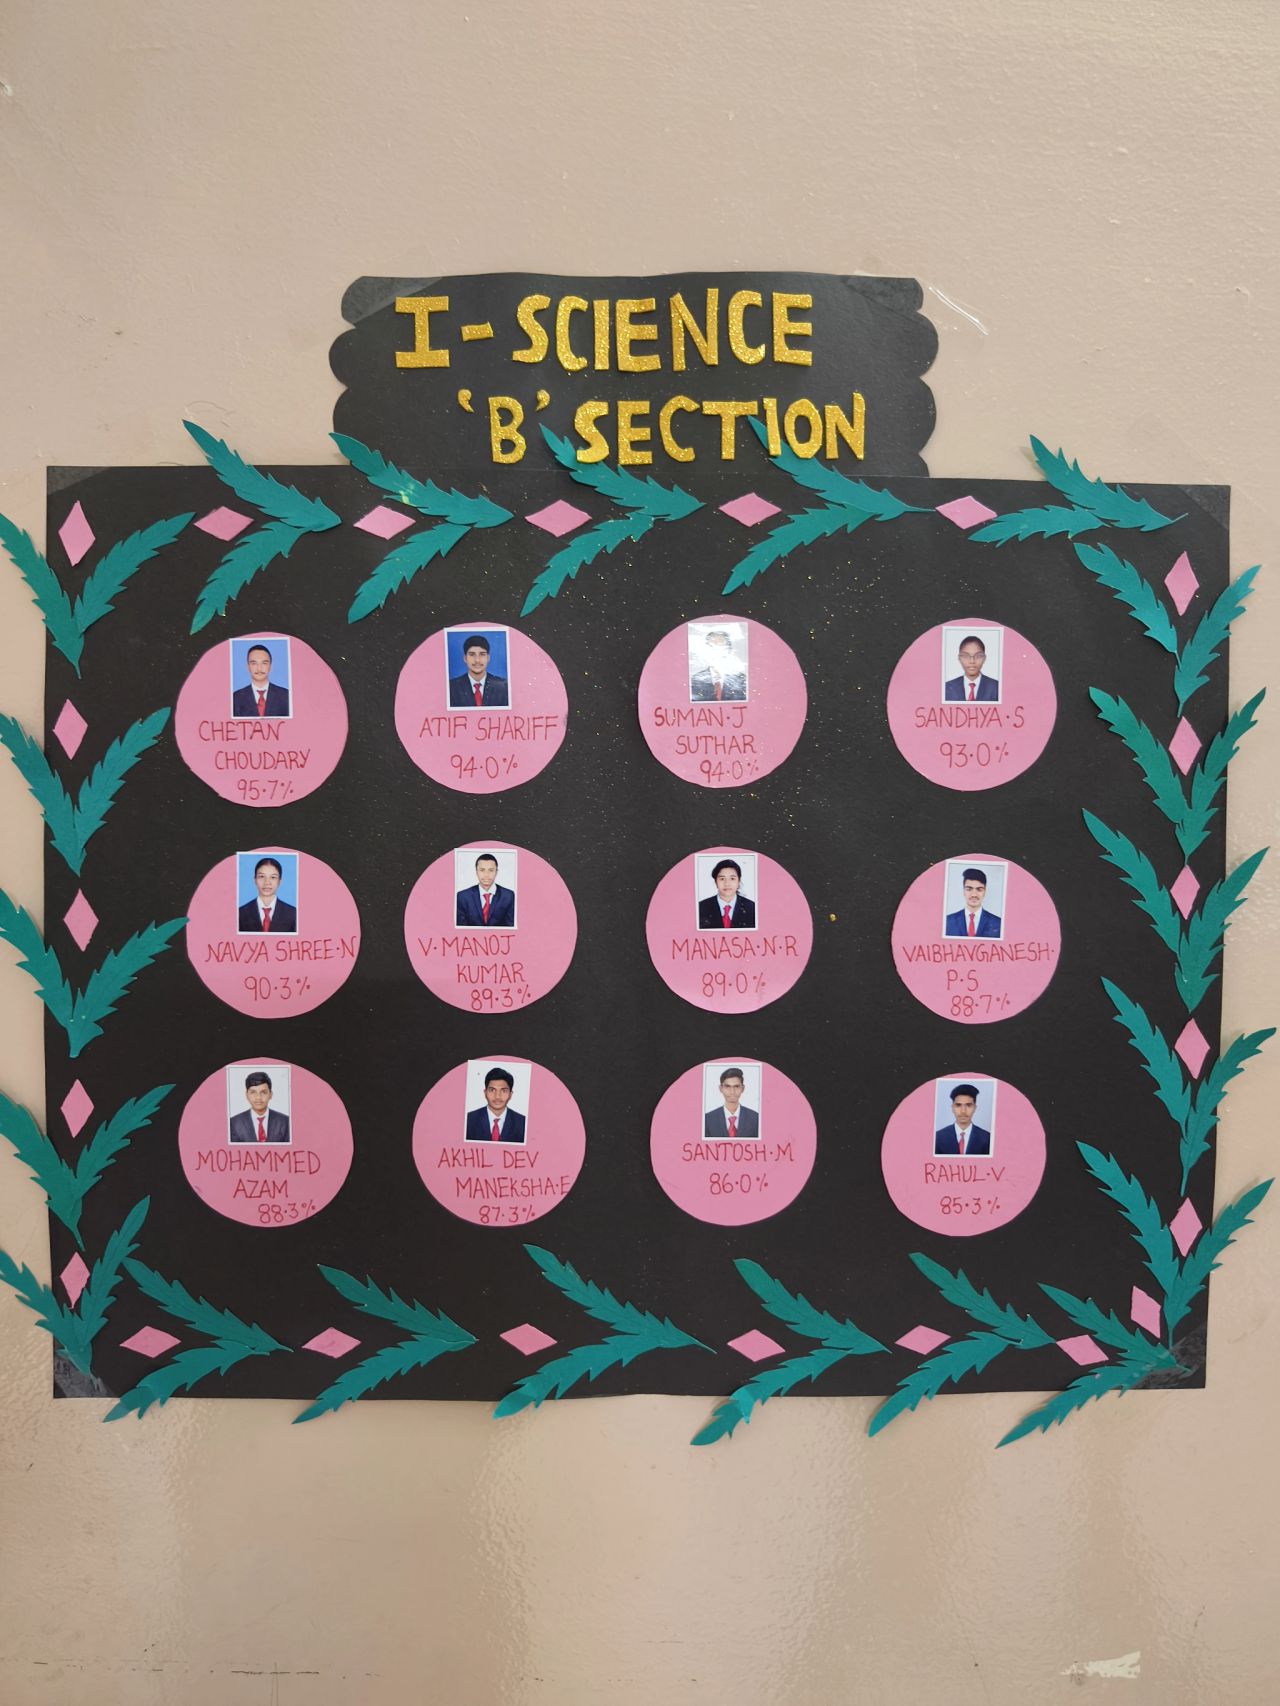 I-SCIENCE
'B' SECTION
CHETAN
CHOUDARY
95.7%
ATIF SHARIFF
94.0%
SUMAN.J
SUTHAR
94.0%
SANDHYA.S
93.0%
NAVYA SHREE.N
90.3%
V.MANOJ
KUMAR
89.3%
MANASA.N.R
89.0%
VAIBHAVGANESH.
P.S
88.7%
MOHAMMED
AZAM
88.3%
AKHIL DEV
MANEKSHA.E
87.3%
SANTOSH.M
86.0%
RAHUL.V
85.3%